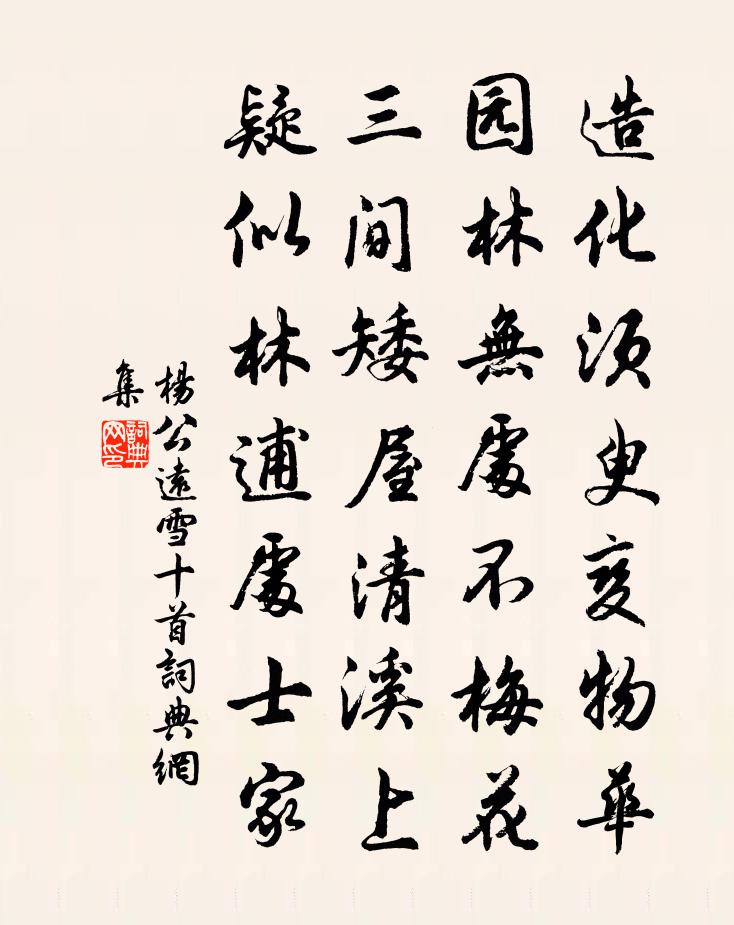 造化须臾变物華
园林無處不梅花
三间矮屋清溪上
疑似林逋處士家
楊公遠雪十首詞典網
集
詞典
网印